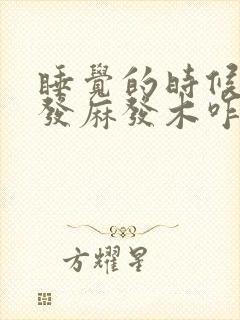 睡覺的時候
發麻發木咋
方耀星